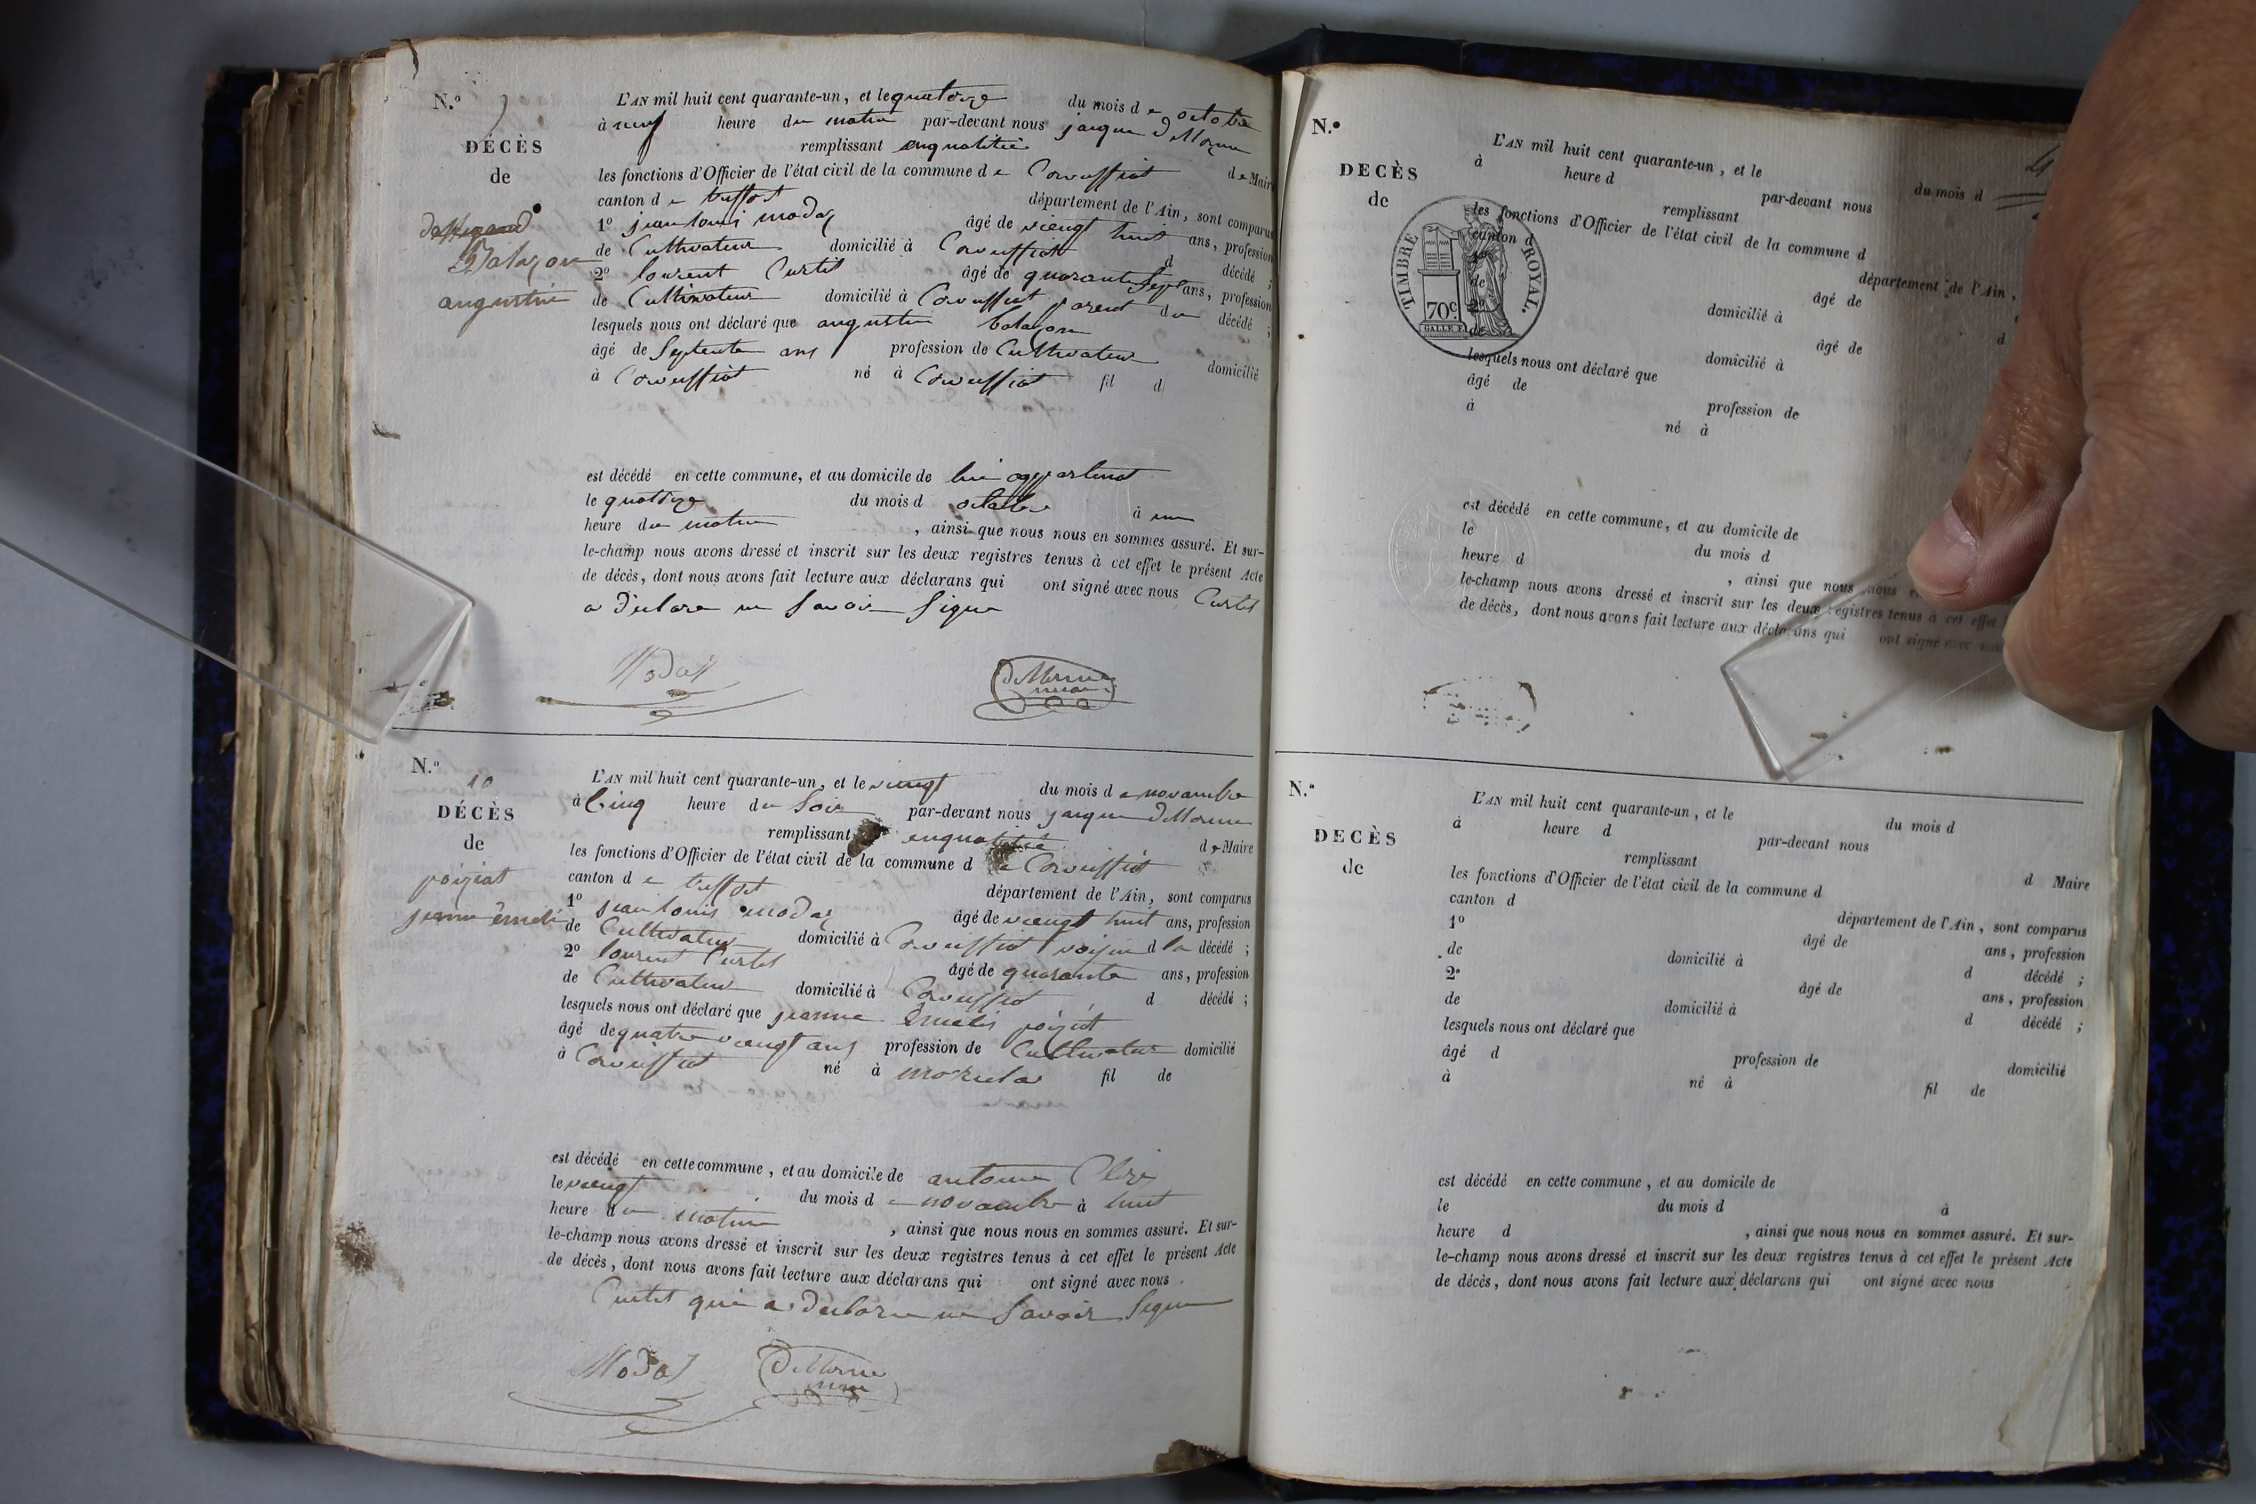 N.o 9
DÉCÈS
de
Balazon
augustin
L'AN mil huit cent quarante-un, et le quatorze du mois de octobre
à neuf heure du matin par-devant nous jacque deMorne
remplissant enqualitée de Maire
les fonctions d'Officier de l'état civil de la commune de Corveissiat
canton de treffort département de l'Ain, sont comparus
1o jean louis modas âgé de viengt huit ans, profession
de Cultivateur domicilié à Corveissiat d décédé ;
2o lourent Curtil âgé de quarante sept ans, profession
de Cultivateur domicilié à Corveissiat parent du décédé ;
lesquels nous ont déclaré que augustin balazon
âgé de Septente ans profession de Cultivateur domicilié
à Corveissiat né à Corveissiat fil d
est décédé en cette commune, et au domicile de lui appartenant
le quatorze du mois d octobre à une
heure du matin , ainsi que nous nous en sommes assuré. Et sur-
le-champ nous avons dressé et inscrit sur les deux registres tenus à cet effet le présent Acte
de décès, dont nous avons fait lecture aux déclarans qui ont signé avec nous Curtil
a déclare ne Savoir Signe
Modas deMorne maire
N.o 10
DÉCÈS
de
poiziat
jeanne émeli
L'AN mil huit cent quarante-un, et le viengt du mois de novambre
à Cinq heure du Soir par-devant nous jacque deMorne
remplissant enqualitée de Maire
les fonctions d'Officier de l'état civil de la commune de Corveissiat
canton de treffort département de l'Ain, sont comparus
1o jean louis modas âgé de viengt huit ans, profession
de Cultivateur domicilié à Corveissiat voisin d la décédé ;
2o lourent Curtil âgé de quarante ans, profession
de Cultivateur domicilié à Corveissiat d décédé ;
lesquels nous ont déclaré que jeanne émelis poiziat
âgé de quatre viengt ans profession de Cultivateur domicilié
à Corveissiat né à fil de
est décédé en cette commune, et au domicile de antoine
le viengt du mois de novambre à huit
heure du matin , ainsi que nous nous en sommes assuré. Et sur-
le-champ nous avons dressé et inscrit sur les deux registres tenus à cet effet le présent Acte
de décès, dont nous avons fait lecture aux déclarans qui ont signé avec nous
Curtil qui a déclare ne Savoir Signe
Modas deMorne maire
N.o
DECÈS
de
TIMBRE ROYAL.
70c.
L'AN mil huit cent quarante-un, et le du mois d
à heure d par-devant nous
remplissant
les fonctions d'Officier de l'état civil de la commune d
canton d département de l'Ain,
1o âgé de
de domicilié à d
2o âgé de
de domicilié à
lesquels nous ont déclaré que
âgé de profession de
à né à
est décédé en cette commune, et au domicile de
le du mois d
heure d , ainsi que nous nous
le-champ nous avons dressé et inscrit sur les deux registres tenus à cet effet
de décès, dont nous avons fait lecture aux déclarans qui ont signé avec nous
N.o
DECÈS
de
L'AN mil huit cent quarante-un, et le du mois d
à heure d par-devant nous
remplissant d Maire
les fonctions d'Officier de l'état civil de la commune d
canton d département de l'Ain, sont comparus
1o âgé de ans, profession
de domicilié à d décédé ;
2o âgé de ans, profession
de domicilié à d décédé ;
lesquels nous ont déclaré que
âgé d profession de domicilié
à né à fil de
est décédé en cette commune, et au domicile de
le du mois d à
heure d , ainsi que nous nous en sommes assuré. Et sur-
le-champ nous avons dressé et inscrit sur les deux registres tenus à cet effet le présent Acte
de décès, dont nous avons fait lecture aux déclarans qui ont signé avec nous